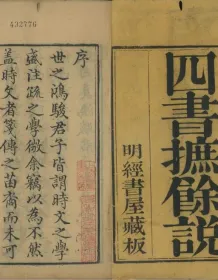 四書摭餘說
明經書屋藏板
432776
序
世之鴻駿君子皆謂時文之學
盛注疏之學微余竊以為不然
蓋時文者箋傳之苗裔而未可